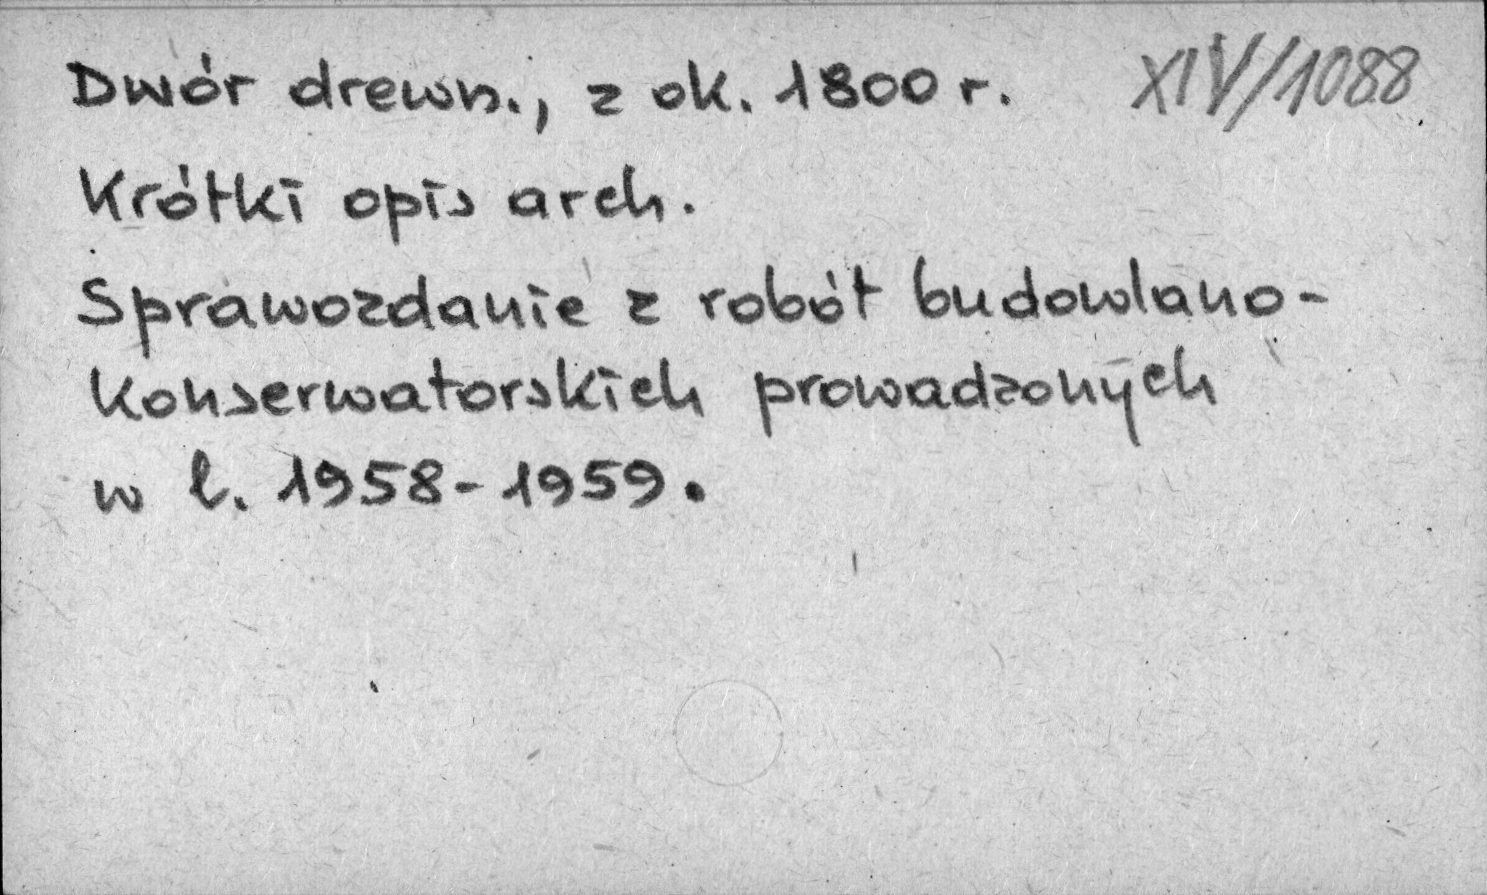 Dwór drewn., z ok. 1800 r. XIV/1088
Krótki opis arch.
Sprawozdanie z robót budowlano-
konserwatorskich prowadzonych
w l. 1958-1959.